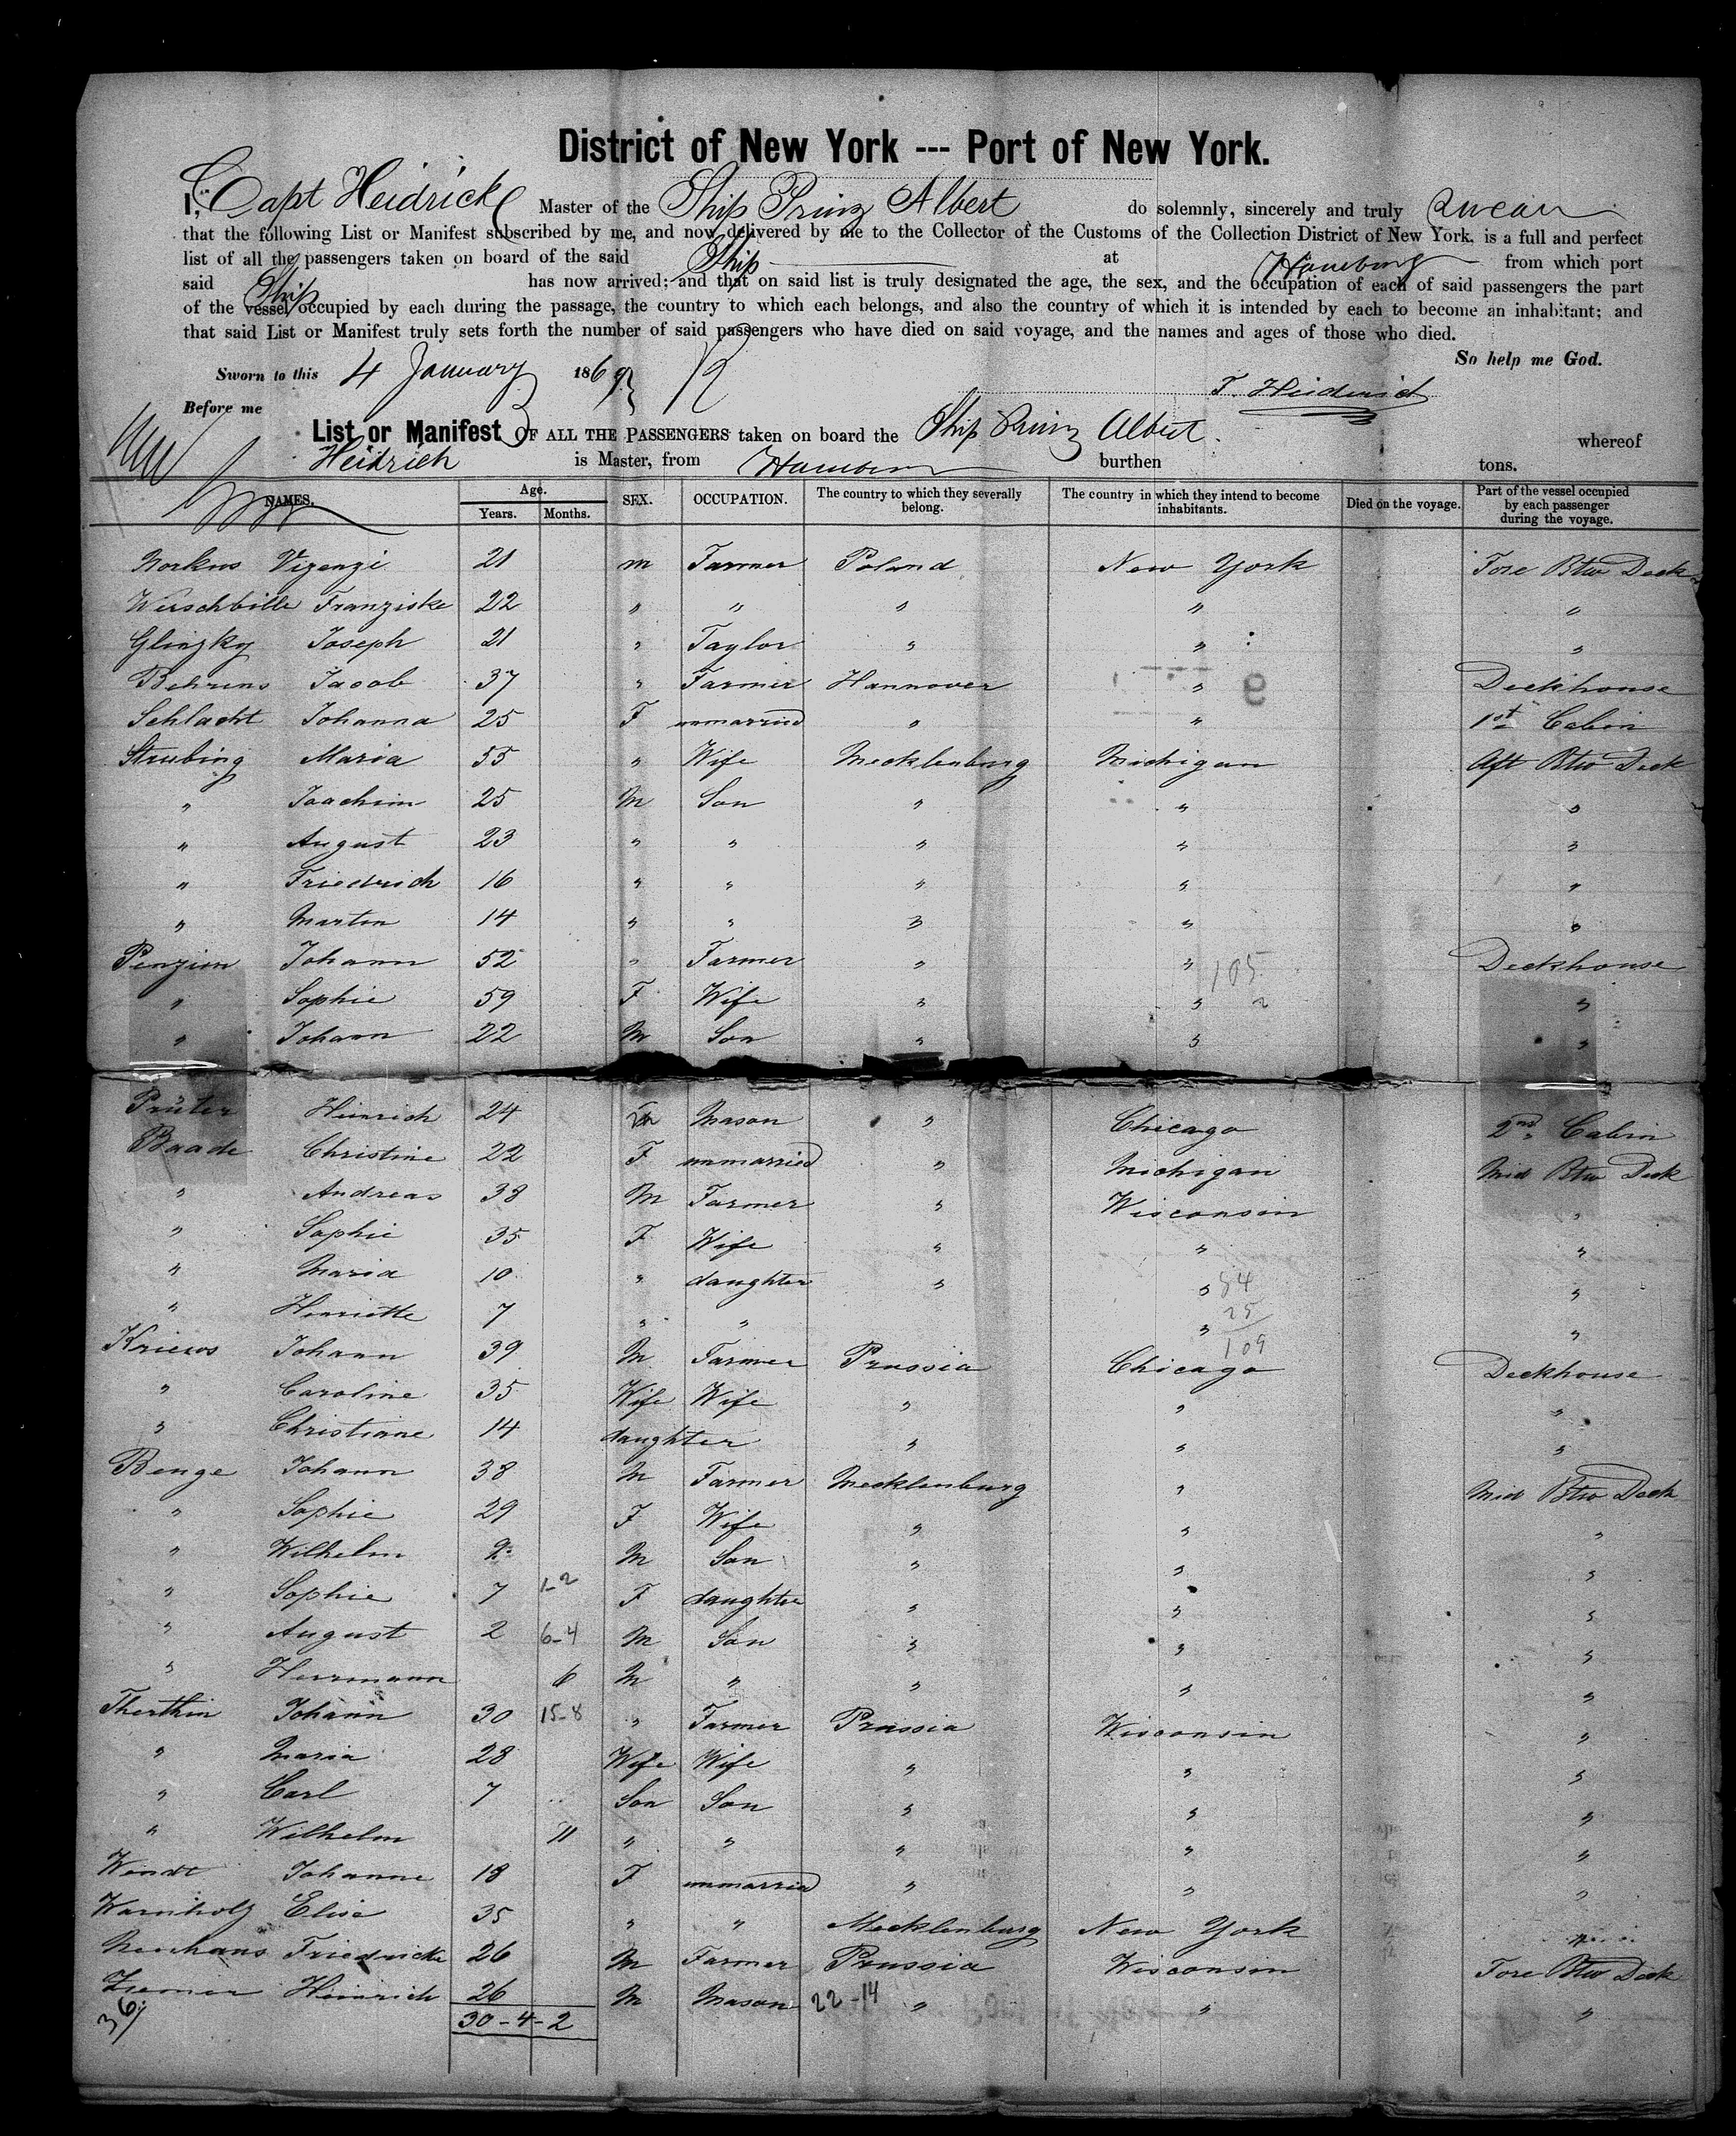 District of New York --- Port of New York.
I, Capt Heidrick Master of the Ship Prinz Albert do solemnly, sincerely and truly swear
that the following List or Manifest subscribed by me, and now delivered by me to the Collector of the Customs of the Collection District of New York, is a full and perfect
list of all the passengers taken on board of the said Ship at Hamburg from which port
said Ship has now arrived; and that on said list is truly designated the age, the sex, and the occupation of each of said passengers the part
of the vessel occupied by each during the passage, the country to which each belongs, and also the country of which it is intended by each to become an inhabitant; and
that said List or Manifest truly sets forth the number of said passengers who have died on said voyage, and the names and ages of those who died.
So help me God.
Sworn to this 4 January 1869 12
T. Heidrich
Before me
List or Manifest OF ALL THE PASSENGERS taken on board the Ship Prinz Albert whereof
Heidrich is Master, from Hamburg burthen tons.
NAMES. Age. Years. Months. SEX. OCCUPATION. The country to which they severally belong. The country in which they intend to become inhabitants. Died on the voyage. Part of the vessel occupied by each passenger during the voyage.
Norkus Vizenzi 21 m Farmer Poland New York Fore Btw Deck
Werschbille Franziske 22 " " " " "
Glinzky Joseph 21 " Taylor " " "
Behrens Jacob 37 " Farmer Hannover " 9 Deckhouse
Schlacht Johanna 25 F unmarried " " 1st Cabin
Strubing Maria 55 " Wife Mecklenburg Michigan Aft Btw Deck
" Joachim 25 M Son " " "
" August 23 " " " " "
" Friedrich 16 " " " " "
" Martin 14 " " " " "
Penzien Johann 52 " Farmer " " 105 Deckhouse
" Sophie 59 F Wife " " 2 "
" Johann 22 M Son " " "
Prüter Heinrich 24 m Mason " Chicago 2nd Cabin
Baade Christine 22 F unmarried " Michigan Mid Btw Deck
" Andreas 38 M Farmer " Wisconsin "
" Sophie 35 F Wife " " "
" Maria 10 " daughter " " 84 "
" Henriette 7 " " " 25 "
109
Kriews Johann 39 M Farmer Prussia Chicago Deckhouse
" Caroline 35 Wife Wife " " "
" Christiane 14 daughter " " "
Benge Johann 38 M Farmer Mecklenburg " Mid Btw Deck
" Sophie 29 F Wife " " "
" Wilhelm 9 M Son " " "
" Sophie 7 1-2 F daughter " " "
" August 2 6-4 M Son " " "
" Herrmann 6 M " " " "
Therthin Johann 30 15-8 " Farmer Prussia Wisconsin "
" Maria 28 Wife Wife " " "
" Carl 7 Son Son " " "
" Wilhelm 11 " " " " "
Wendt Johanne 18 F unmarried " " "
Warnholz Elise 35 " " Mecklenburg New York "
Neuhaus Friedricke 26 M Farmer Prussia Wisconsin Fore Btw Deck
Ziemer Heinrich 26 M Mason 22-14 " " "
36 30-4-2